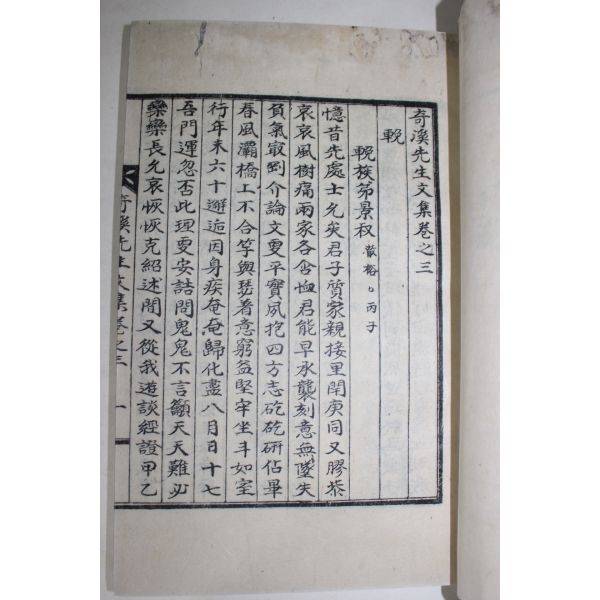 奇溪先生文集卷之三
輓
輓族弟景叔 敬裕 丙子
憶昔先處士允矣君子質家親接里閈庚同又膠漆
哀哀風樹痛兩家各含恤君能早承襲刻意無墜失
負氣最剛介論文更平實夙抱四方志矻矻研佔畢
春風灞橋上不合竽與瑟着意窮益堅牢坐斗如室
行年未六十邂逅因身疾奄奄歸化盡八月日十七
吾門運忽否此理更安詰問鬼鬼不言籲天天難必
欒欒長允哀恢恢克紹述閒又從我遊談經證甲乙
奇溪先生文集卷之三 一